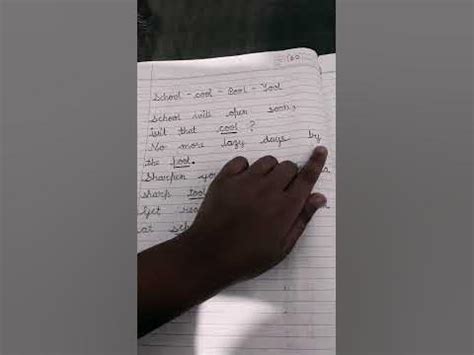 School - cool - Pool - Tool
School will open soon,
isn't that cool ?
No more lazy days by
the pool.
Sharpen you
sharp too
Get rea
at sch